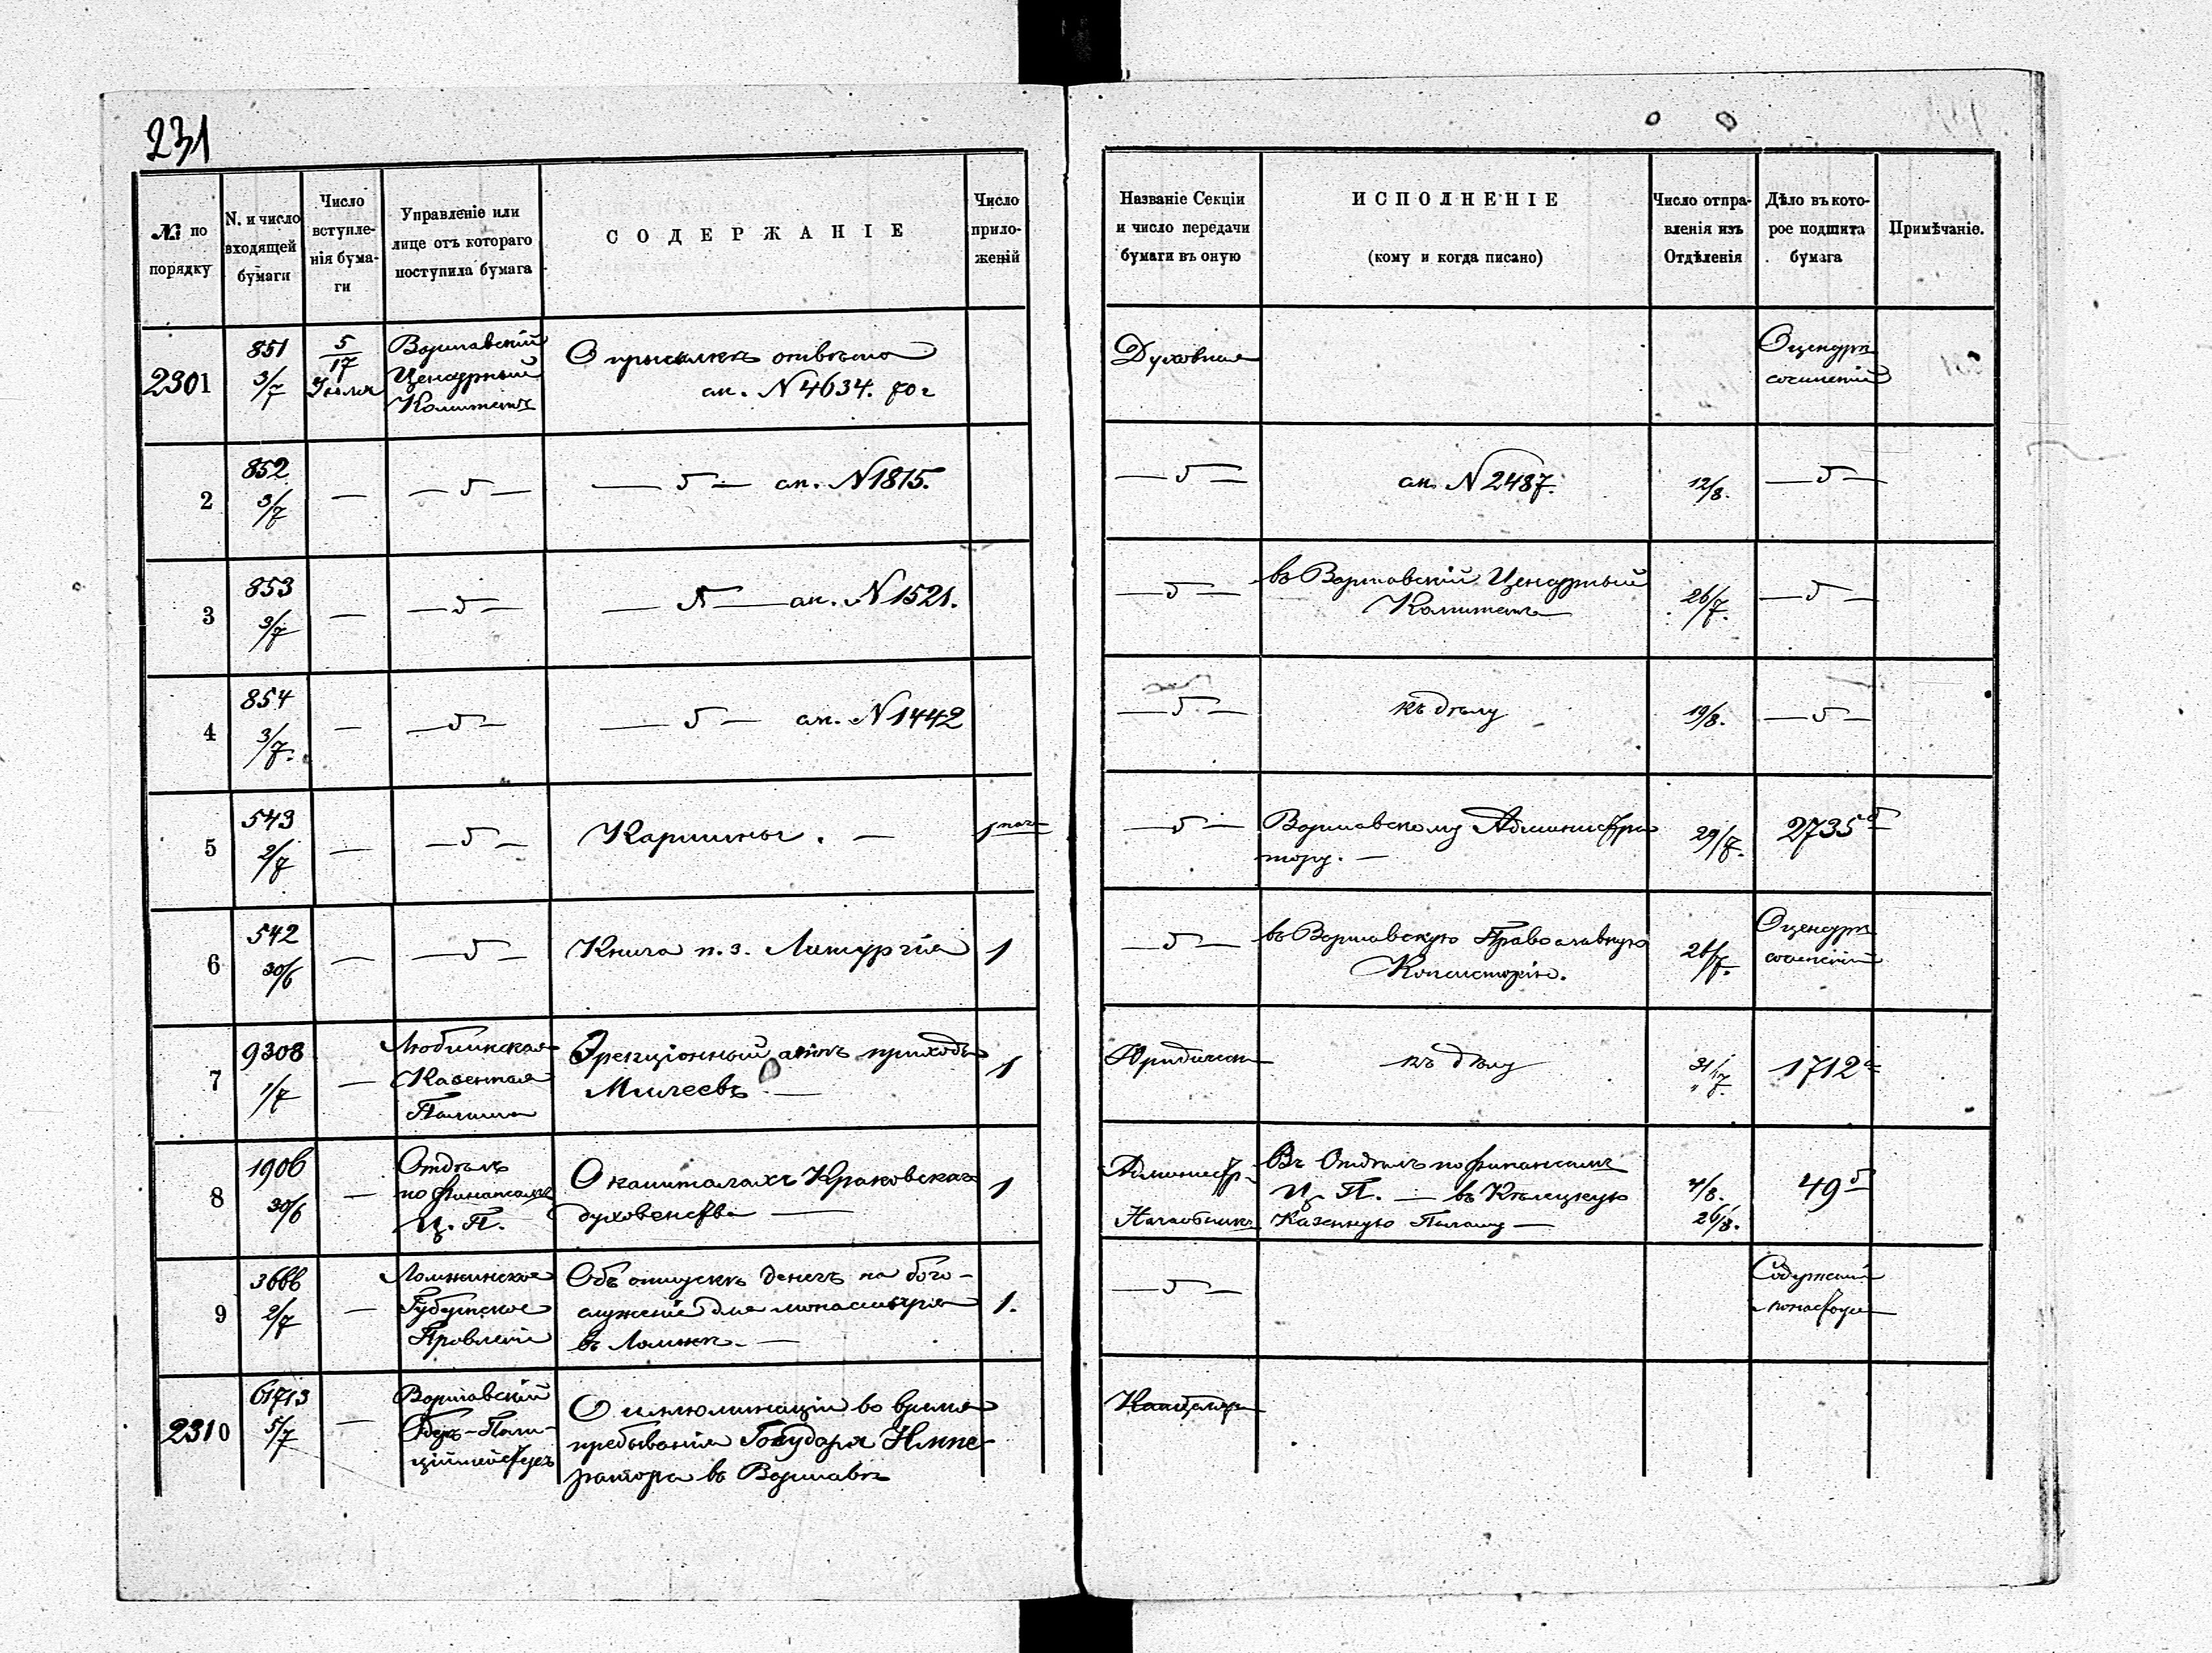 231
№ по порядку
N. и число входящей бумаги
Число вступле-нія бума-ги
Управленіе или лице отъ котораго поступила бумага
СОДЕРЖАНІЕ
Число прило-женій
Названіе Секціи и число передачи бумаги въ оную
ИСПОЛНЕНІЕ
(кому и когда писано)
Число отпра-вленія изъ Отдѣленія
Дѣло въ кото-рое подшита бумага
Примѣчаніе.
2301
851
3/7
5/17
Іюля
Варшавскій
Цензурный
Комитетъ
О присылкѣ отвѣта
на N 4634. 70 г
Духовная
О цензурѣ
сочиненій
2
852
3/7
—
— 5 —
— 5 — на N 1815.
— 5 —
на N 2487.
12/8.
— 5 —
3
853
3/7
—
— 5 —
— 5 — на N 1521.
— 5 —
въ Варшавскій Цензурный
Комитетъ
26/7.
— 5 —
4
854
3/7.
—
— 5 —
— 5 — на N 1442
— 5 —
къ дѣлу
19/8.
— 5 —
5
543
2/7
—
— 5 —
Картины. —
1 пач
— 5 —
Варшавскому Администра
тору. —
29/7.
2735 б
6
542
30/6
—
— 5 —
Книга п. з. Литургія
1
— 5 —
въ Варшавскую Православную
Консисторію.
26/7.
О цензурѣ
сочиненій
7
9308
1/7
—
Люблинская
Казенная
Палата
Эрекціонный актъ прихода
Милеевъ —
1
Юридическ
къ дѣлу
31/7.
1712 а
8
1906
30/6
—
Отдѣлъ
по финансамъ
Ц. П.
О капиталахъ Краковскаго
духовенства —
1
Администр.
Начальникъ
Въ Отдѣлъ по финансамъ
Ц. П. — въ Кѣлецкую
Казенную Палату —
4/8.
26/8.
49 б
9
3666
2/7
—
Ломжинское
Губернское
Правленіе
Объ отпускѣ денегъ на бого-
служеніе для монастыря
въ Ломжѣ. —
1.
— 5 —
Содержаніе
2310
61713
5/7
—
Варшавскій
Оберъ-Поли-
ціймейстеръ
О иллюминаціи во время
пребыванія Государя Импе-
ратора въ Варшавѣ
Канцеляр